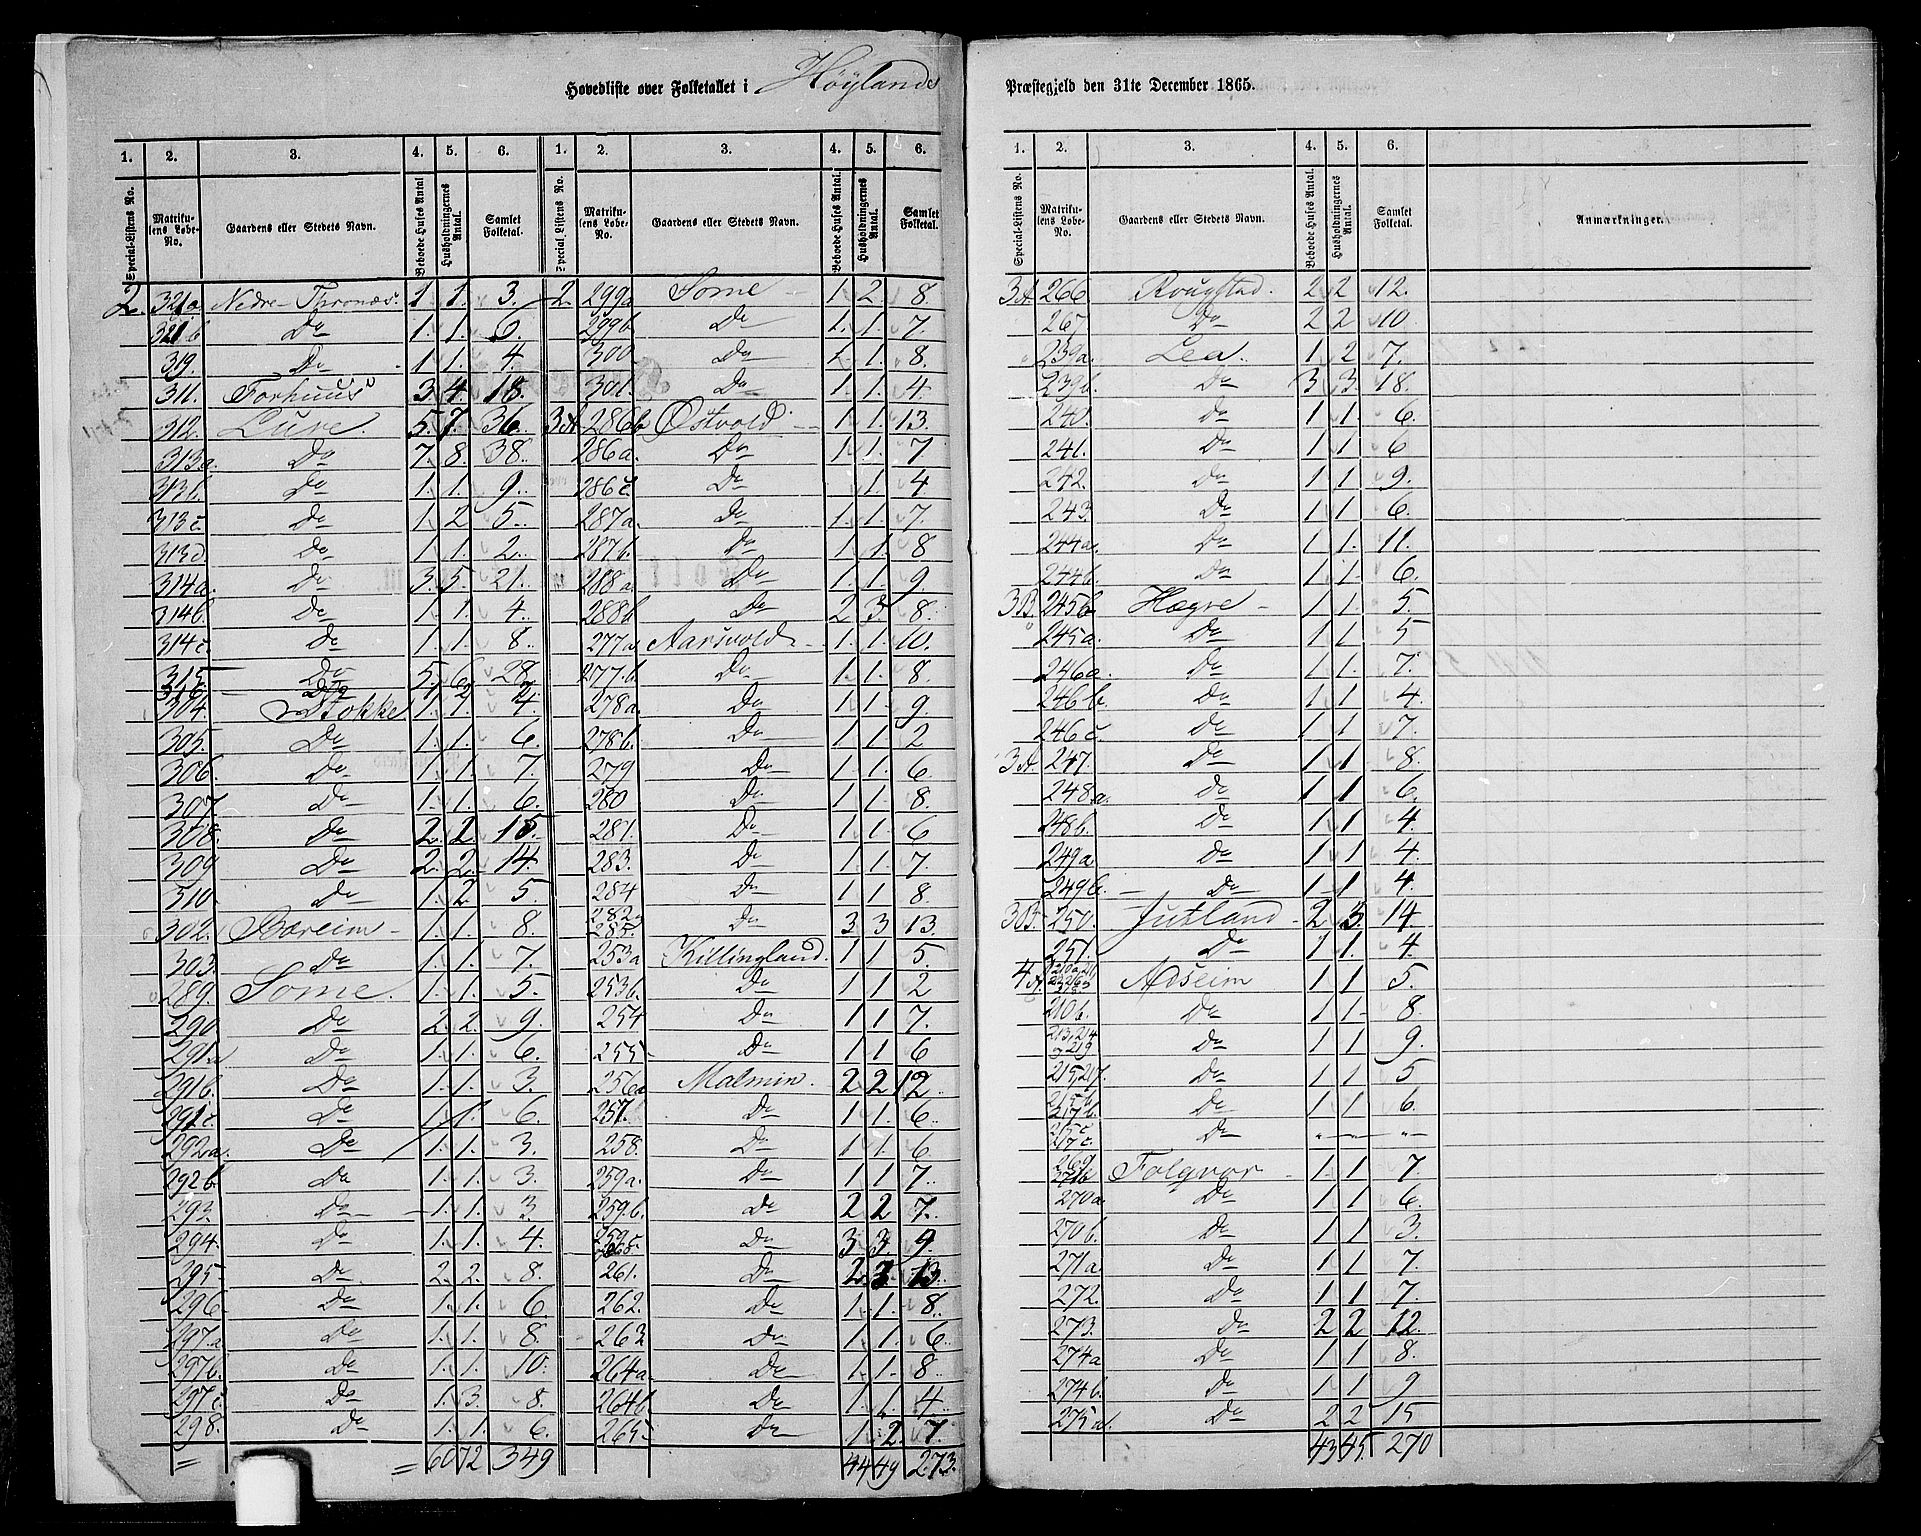 Hovedliste over Folketallet i Höylands Præstegjeld den 31te December 1865.
1. 2. 3. 4. 5. 6. 1. 2. 3. 4. 5. 6.
Special-Listens No. Matrikulens Løbe-No. Gaardens eller Stedets Navn. Beboede Huses Antal Husholdningernes Antal. Samlet Folketal. Special Listens No. Matrikulens Løbe-No. Gaardens eller Stedets Navn. Beboede Huses Antal. Husholdningernes Antal. Samlet Folketal.
2. 321a Nedre-Thronæs. 1. 1. 3. 2. 299a Some 1. 2. 8.
321b Do 1. 1. 6. 299b Do 1. 1. 7.
319. Do 1 1. 4. 300 Do 1. 1. 8.
311. Forhuus 3 4. 18. 301. Do 1. 1. 4
312. Lure. 5. 7. 36. 3A. 286b Østvold 1. 1. 13.
313a. Do 7. 8. 38. 286a. Do 1. 1. 7
313b. Do 1. 1. 9. 286c. Do 1. 4.
313c. Do 1. 2. 5. 287a. Do 1. 1. 7.
313d Do 1. 1. 2. 287b. Do 1. 1. 8
314a. Do 3. 5. 21. 288a. Do 1. 1. 9
314b. Do 1. 1. 4. 288b Do 2 3. 8.
314c. Do 1. 1. 8. 277a Aarsvold 1. 1. 10.
315 Do 5. 6. 28. 277.b Do 1. 1. 8.
316 Do 1 2 7.
304. Stokke 1. 1. 4. 278a. Do 1. 1. 9.
305. Do 1. 1. 6. 278b. Do 1 1 2
306. Do 1. 1. 7. 279 Do 1. 1. 6
307. Do 1. 1. 6. 280 Do 1 1. 8.
308. Do 2. 2 15. 281. Do 1. 1. 6
309 Do 2. 2. 14. 283. Do 1. 1. 7.
310 Do 1. 2 5. 284 Do 1 1 8.
302. Bareim 1. 1. 8. 282 285. Do 3 3 13.
303. Do 1. 1. 7. 253a Killingland. 1 1 5.
289. Some. 1. 1. 5. 253b. Do 1 1 2
290 Do 2. 2. 9. 254 Do 1 1 7.
291a Do 1. 1. 6. 255 Do 1 1 6
291b. Do 1. 1. 3. 256a Malmin. 2 2 12
291c. Do 1. 1. 6. 257. Do 1 1. 6.
292a. Do 1. 1. 3. 258. Do 1 1. 6
292b. Do 1. 1. 3. 259a. Do 1 1 7.
293. Do 1. 1. 3 259b. Do 2 2 7.
294. Do 1. 1. 4. Do 3 3. 9.
295 Do 2. 2. 8. 261. Do 2. 3 13.
296 Do 1. 1. 6 262. Do 1. 1. 8.
297a Do 1. 1. 8. 263 Do 1 1. 6.
297b. Do 1. 1. 10. 264a. Do 1. 1. 8
297c. Do 1. 3. 8. 264b Do 1. 1. 4.
298. Do 1. 1. 6. 265 Do 1 2. 7.
60 72 349 44 49 273.
1. 2. 3. 4. 5. 6.
Special-Listens No. Matrikulens Løbe-No. Gaardens eller Stedets Navn. Beboede Huses Antal. Husholdningernes Antal. Samlet Folketal. Anmærkninger.
3A. 266 Rougstad. 2 2 12.
267 Do 2 2 10.
239a. Lea. 1 2 7.
239b. Do 3 3. 18.
240. Do 1 1 6.
241. Do 1 1. 6
242. Do 1 1 9.
243. Do 1 1 6.
244a. Do 1 1. 11.
244b. Do 1 1. 6.
3B. 245b Høgre 1 1 5.
245a. Do 1 1 5
246a. Do 1 1. 7.
246b. Do 1 1 4.
246c. Do 1 1 7.
3A. 247. Do 1 1 8.
248.a. Do 1 1 6.
248b. Do 1 1 4.
249a Do 1 1 4.
249b. Do 1 1 4.
3B. 250. Jutland 2 3. 14
251. Do 1 1. 4.
4A. Aseim 1 1 5.
210b. Do 1 1 8.
213, 214 219 Do 1 1 9.
215, 217. Do 1 1 5
215b 217b. Do 1 1 6.
215c 217c. Do „ „ „
Folgvor 1 1 7.
270a. Do 1 1 6.
270b. Do 1 1 3.
271a Do 1 1 7.
272. Do 1 1 7.
273. Do 2 2 12.
274a Do 1 1 8.
274b. Do 1 1 9
275a. Do 2 2 15
43 45. 270